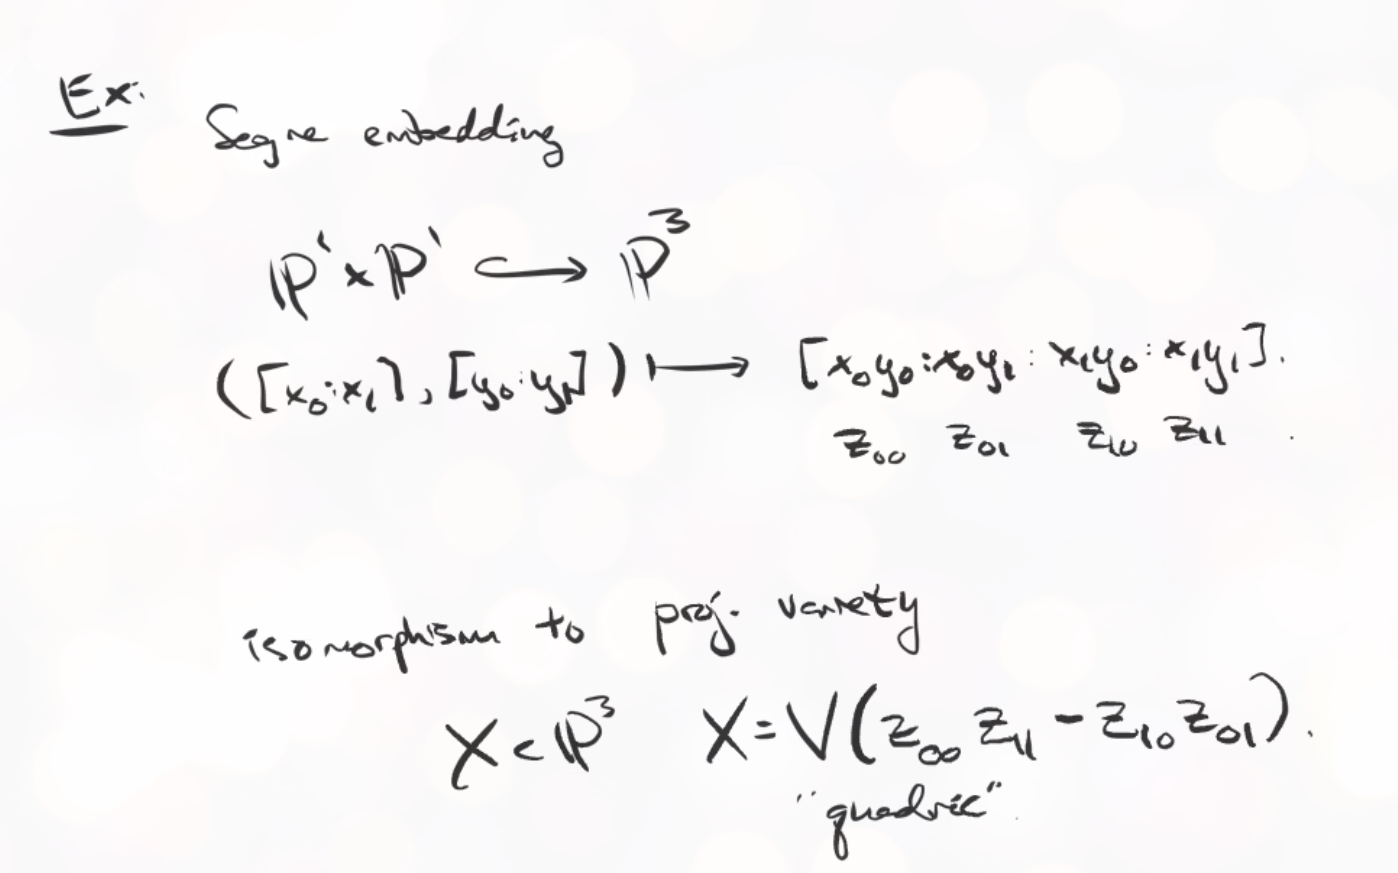 Ex:
Segre embedding
ℙ¹ × ℙ¹ ↪ ℙ³
([x₀:x₁], [y₀:y₁]) ↦ [x₀y₀:x₀y₁:x₁y₀:x₁y₁].
z₀₀ z₀₁ z₁₀ z₁₁
isomorphism to proj. variety
X ⊂ ℙ³ X = V(z₀₀ z₁₁ − z₁₀ z₀₁).
"quadric"